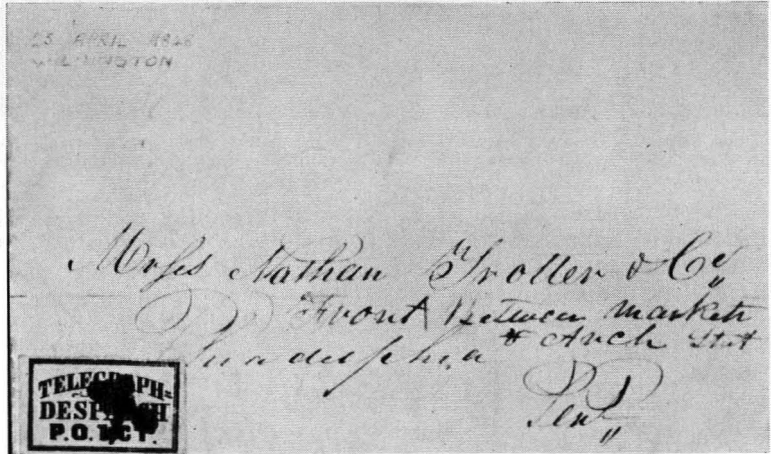 23 APRIL 1848
WILMINGTON
Messrs Nathan Trotter & Co
Front Between Market
& Arch Street
Philadelphia
Pena
TELEGRAPH-
DESPATCH
P.O. 1 CT.